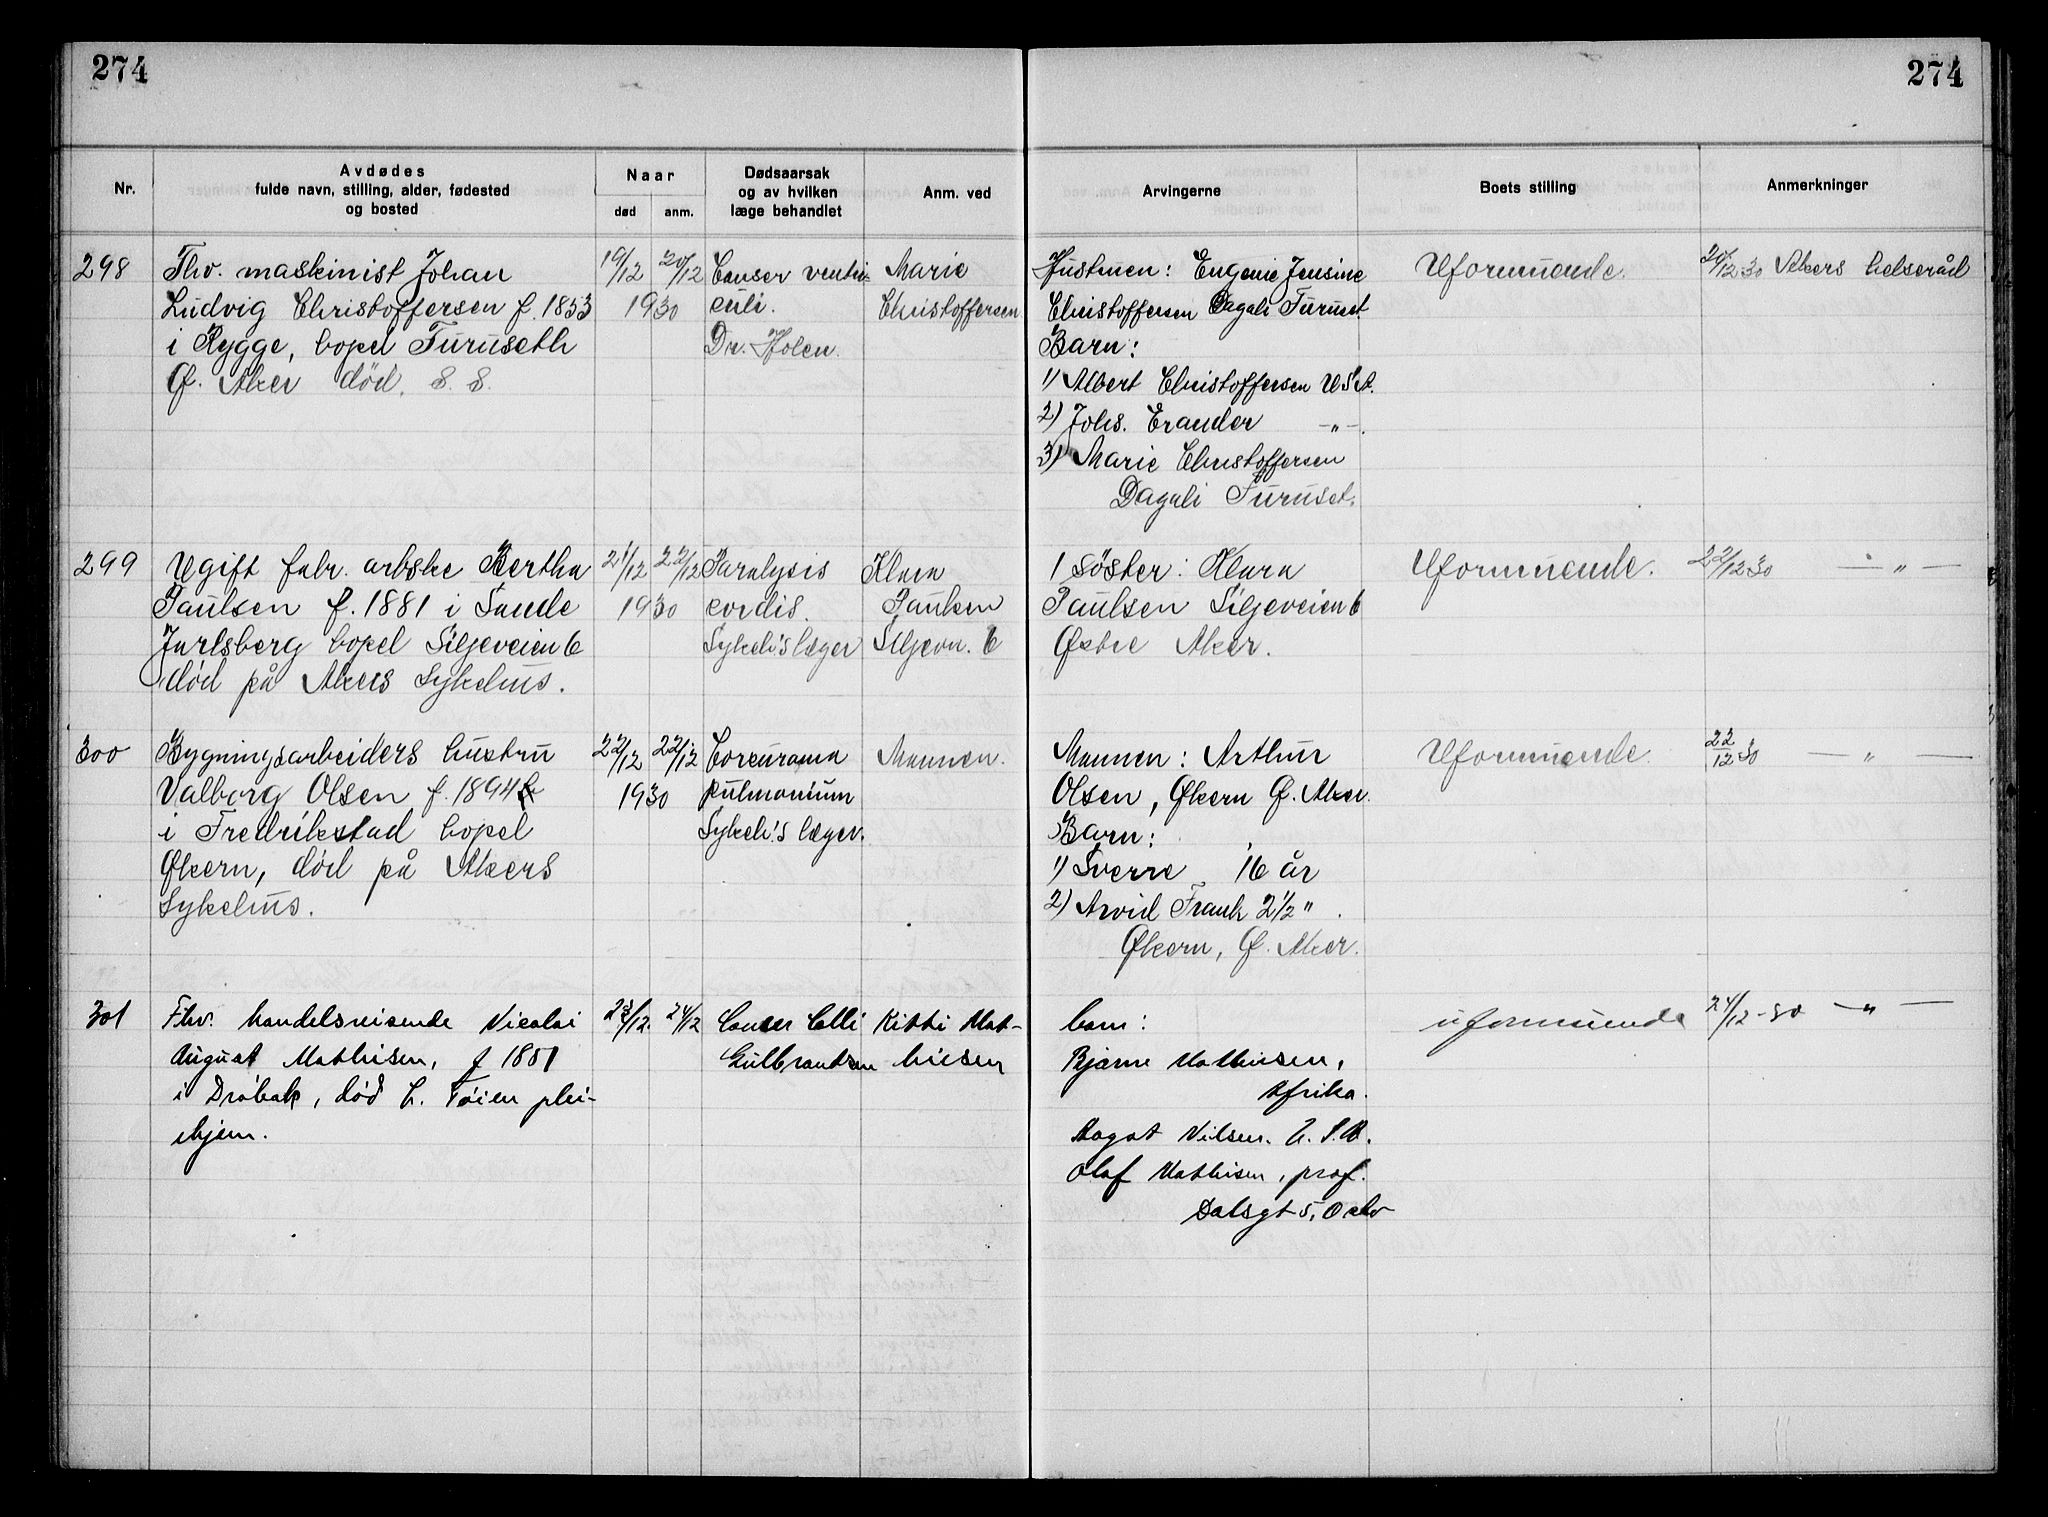 274
274
Nr.
Avdødes
fulde navn, stilling, alder, fødested
og bosted
Naar
død
anm.
Dødsaarsak
og av hvilken
læge behandlet
Anm. ved
Arvingerne
Boets stilling
Anmerkninger
298
Fhv. maskinist Johan
Ludvig Christoffersen f. 1853
i Rygge, bopel Furuseth
Ø. Aker død. s. s.
19/12 20/12
1930
Canser ventri-
culi.
Dr. Holen.
Marie
Christoffersen
Hustruen: Eugenie Jensine
Christoffersen Dagali Furuset
Barn:
1) Albert Christoffersen U.S.A.
2) Johs. Erander -"-.
3) Marie Christoffersen
Dagali Furuset.
Uformuende.
20/12 30 Akers helseråd
299
Ugift fabr. arbske Bertha
Paulsen f. 1881 i Sande
Jarlsberg bopel Siljeveien 6
død på Akers Sykehus.
21/12 22/12
1930
Paralysis
cordis.
Sykeh's læger
Klara
Paulsen
Siljevn. 6
1 Søster: Klara
Paulsen Siljeveien 6
Østre Aker.
Uformuende.
22/12 30 — " —
300
Bygningsarbeiders hustru
Valborg Olsen f. 1894
i Fredrikstad bopel
Økern, død på Akers
Sykehus.
22/12 22/12
1930
pulmonium
Sykeh's læger.
Mannen.
Mannen: Arthur
Olsen, Økern Ø. Aker.
Barn:
1) Sverre 16 år
2) Arvid Frank 2½ "
Økern, Ø. Aker.
Uformuende.
22/12 30 — " —
301
Fhv. handelsreisende Nicolai
August Mathisen, f 1851
i Drøbak, død L. Tøien plei-
ehjem.
23/12. 24/12
Cancer Colli
Gulbrandsen
Kitti Mat-
hiesen
barn:
Bjarne Mathiesen,
Afrika.
Aagot Nilsen. U. S. A.
Olaf Mathisen, prof.
Dalsgt 5, Oslo
uformuende
24/12 - 30 — " —